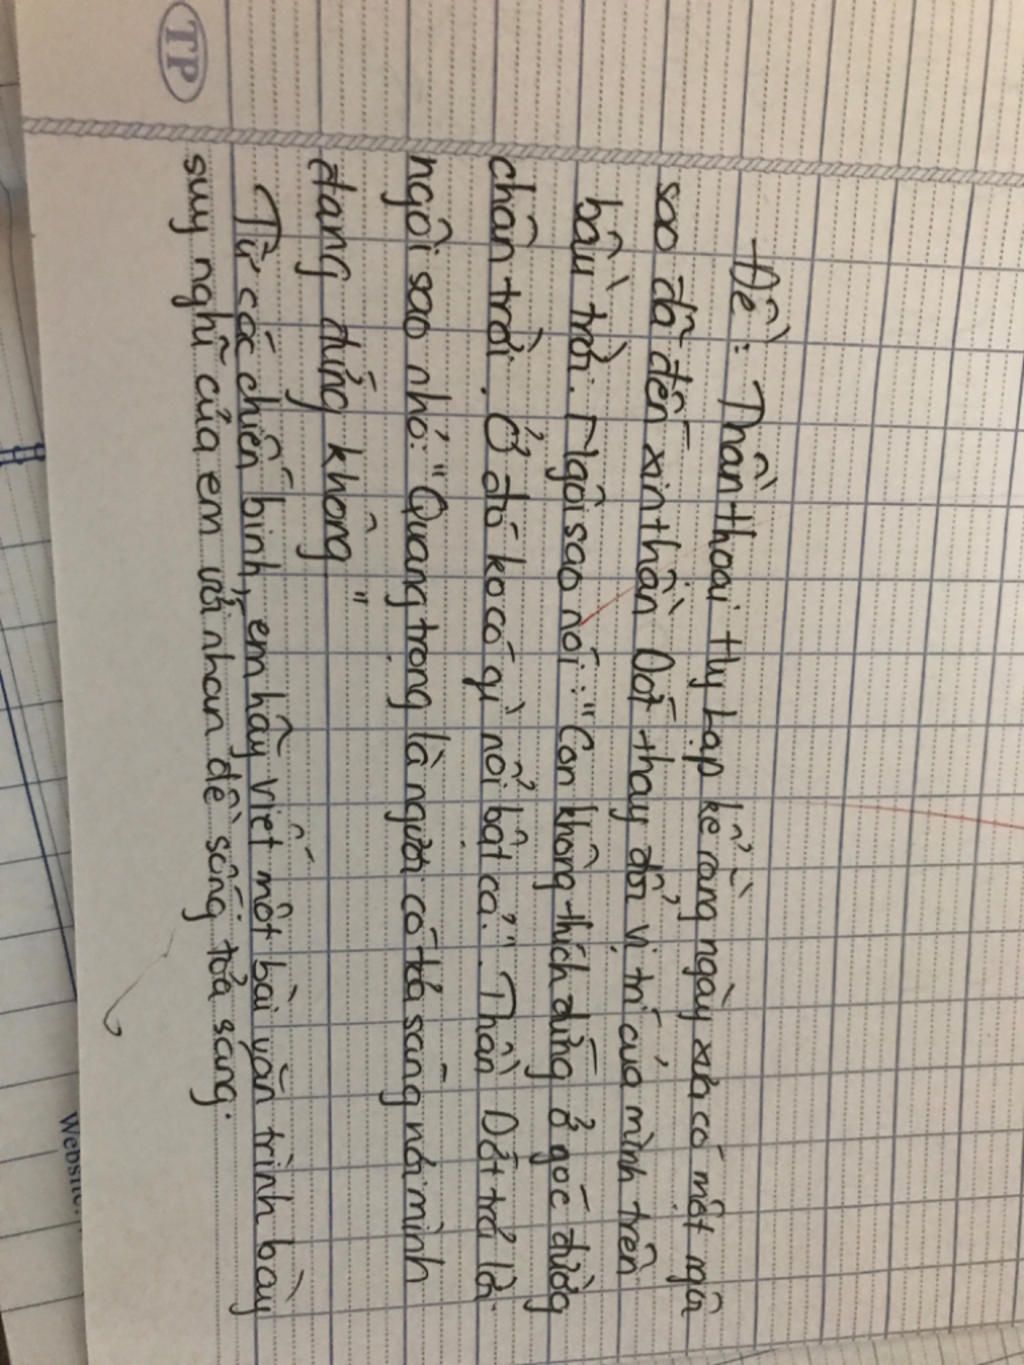 Đề: Thần thoại Hy Lạp kể rằng ngày xưa có một ngôi
sao đã đến xin thần Dớt thay đổi vị trí của mình trên
bầu trời. Ngôi sao nói: "Con không thích đứng ở góc đường
chân trời. Ở đó ko có gì nổi bật cả.". Thần Dớt trả lời
ngôi sao nhỏ: "Quang trọng là người có tỏa sáng nơi mình
đang đứng không"
Từ các chiến binh, em hãy viết một bài văn trình bày
suy nghĩ của em với nhan đề sống tỏa sáng.
TP
Website: